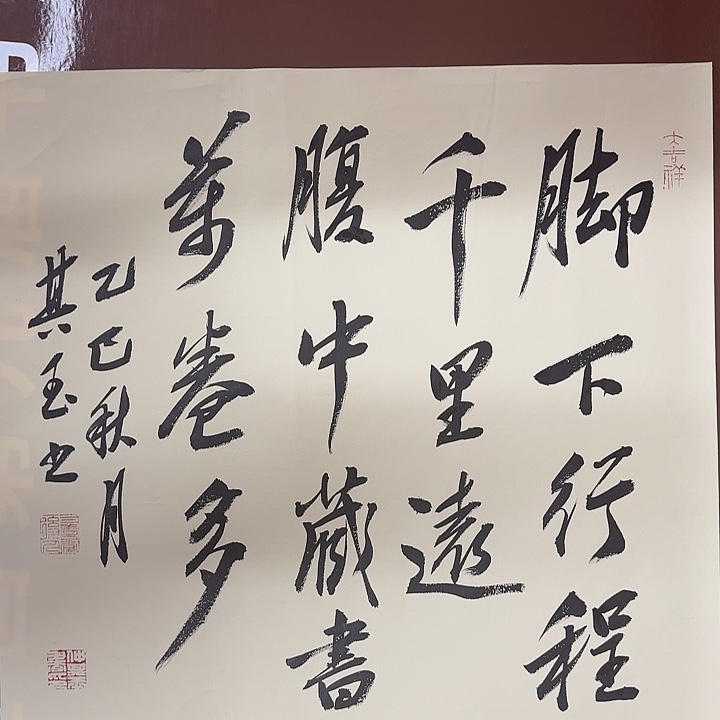 大吉祥
脚下行程
千里遠
腹中藏書
萬卷多
乙巳秋月
其玉书